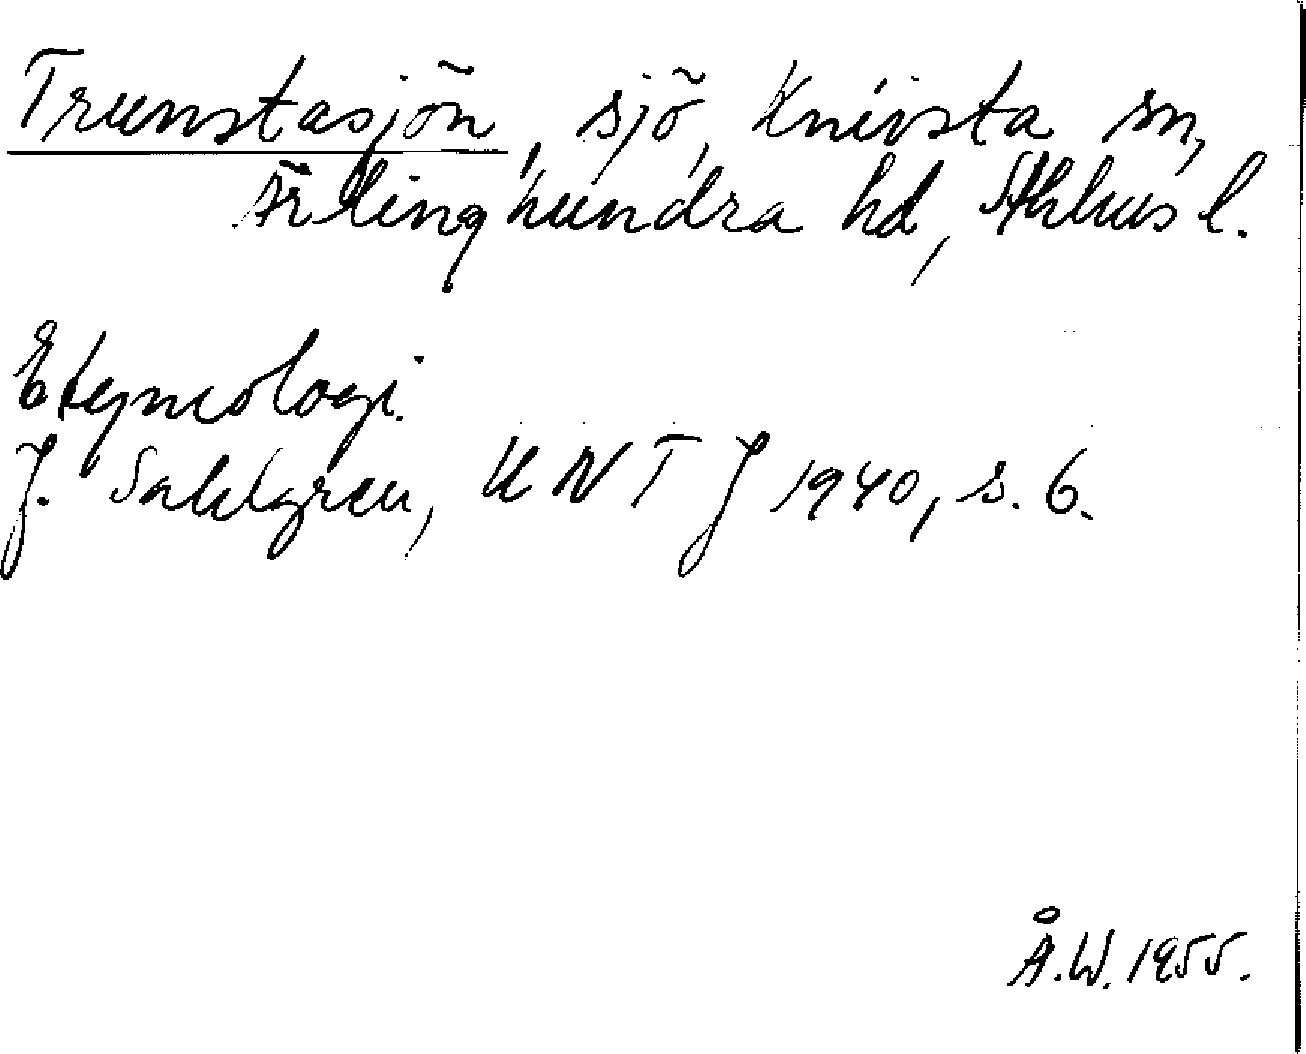 Trunstasjön, sjö, Knivsta sn,
Ärlinghundra hd, Sthlms l.
Etymologi.
J. Sahlgren, UNTJ 1940, s. 6.
Å.W. 1955.